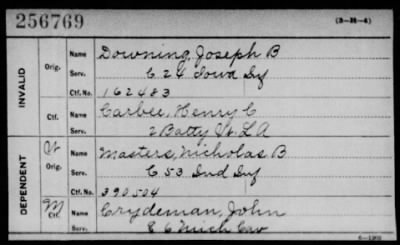 256769 (3-21-4)
INVALID
Orig. Name Downing, Joseph B
Serv. C 24 Iowa Inf
Ctf. No. 162483
Ctf. Name Carbee, Henry C
Serv. 2 Batty Vt. L A
DEPENDENT
W Orig. Name Masters, Nicholas B
Serv. C 53 Ind Inf
Ctf. No. 390504
M Ctf. Name Crydeman, John
Serv. E 6 Mich Cav